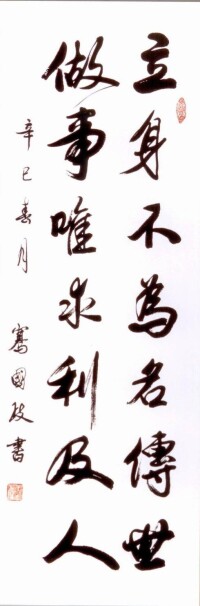 立身不為名傳世
做事唯求利及人
辛巳春月
國
書